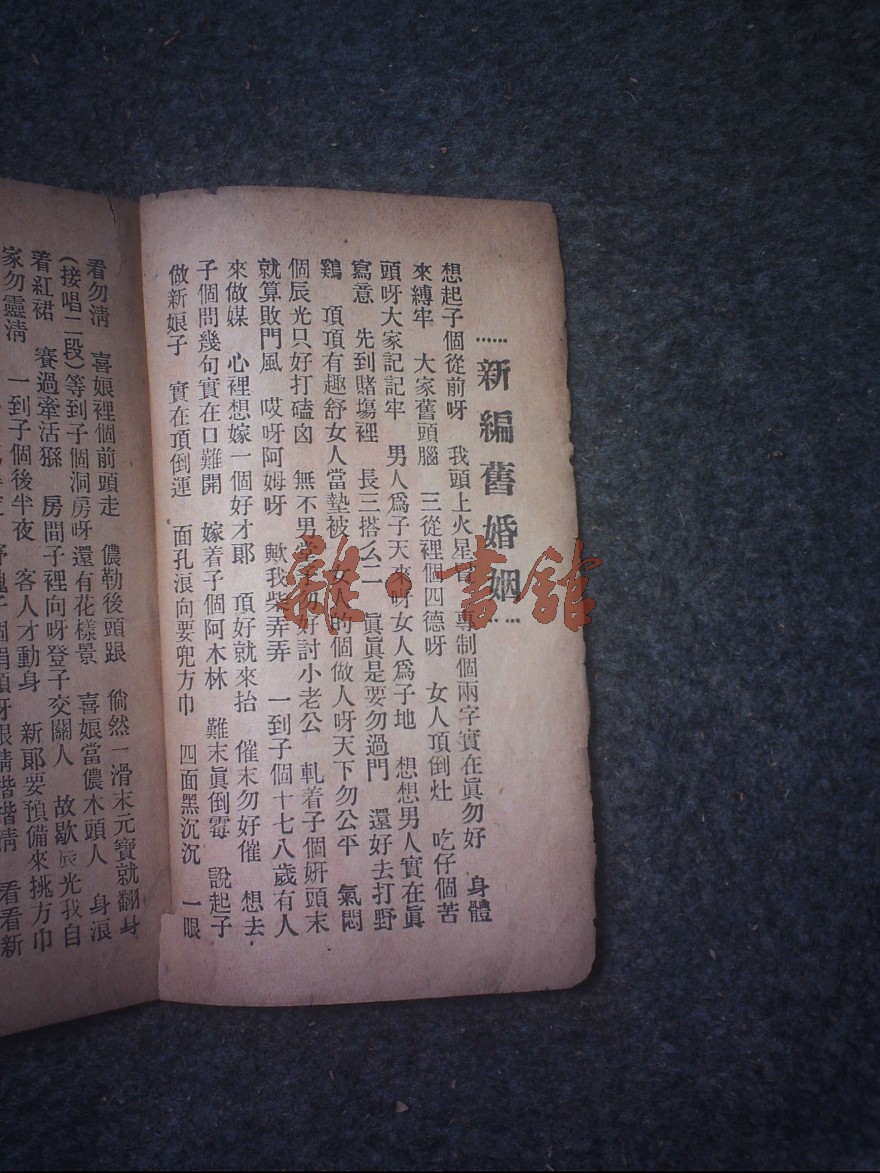 ……新編舊婚姻……
想起子個從前呀 我頭上火星冒 專制個兩字實在眞勿好 身體
來縛牢 大家舊頭腦 三從裡個四德呀 女人頂倒灶 吃仔個苦
頭呀大家記記牢 男人爲子天來呀女人爲子地 想想男人實在眞
寫意 先到賭塲裡 長三搭么二 眞眞是要勿過門 還好去打野
鷄 頂頂有趣舒女人當墊被 女人的個做人呀天下勿公平 氣悶
個辰光只好打磕凶 無不男堂子勿好討小老公 軋着子個姸頭末
就算敗門風 哎呀阿姆呀 歎我柴弄弄 一到子個十七八歲有人
來做媒 心裡想嫁一個好才郞 頂好就來抬 催末勿好催 想去
子個問幾句實在口難開 嫁着子個阿木林 難末眞倒霉 說起子
做新娘子 實在頂倒運 面孔浪向要兜方巾 四面黑沉沉 一眼
看勿淸 喜娘裡個前頭走 儂勒後頭跟 倘然一滑末元寶就翻身
(接唱二段)等到子個洞房呀還有花樣景 喜娘當儂木頭人 身浪
着紅裙 賽過牽活猻 房間子裡向呀登子交關人 故歇辰光我自
家勿靈淸 一到子個後半夜 客人才動身 新郞要預備來挑方巾
眼睛揩揩淸 看看新
雜·書館